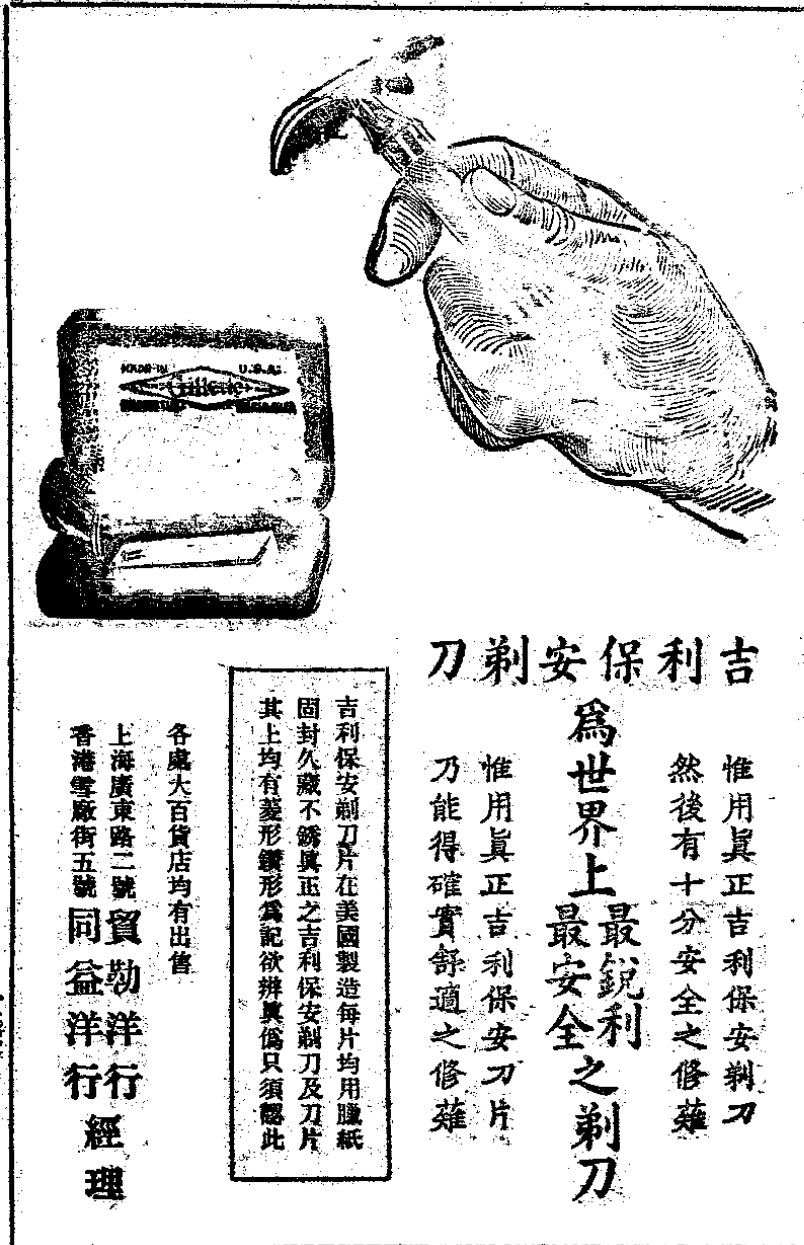 MADE IN U.S.A.
Gillette
吉利保安剃刀
惟用眞正吉利保安剃刀
然後有十分安全之修薙
爲世界上最銳利最安全之剃刀
惟用眞正吉利保安刀片
乃能得確實舒適之修薙
吉利保安剃刀片在美國製造每片均用臘紙
固封久藏不銹眞正之吉利保安剃刀及刀片
其上均有菱形鑽形爲記欲辨眞僞只須認此
各處大百貨店均有出售
上海廣東路二號貿勒洋行
香港雪廠街五號同益洋行
經理